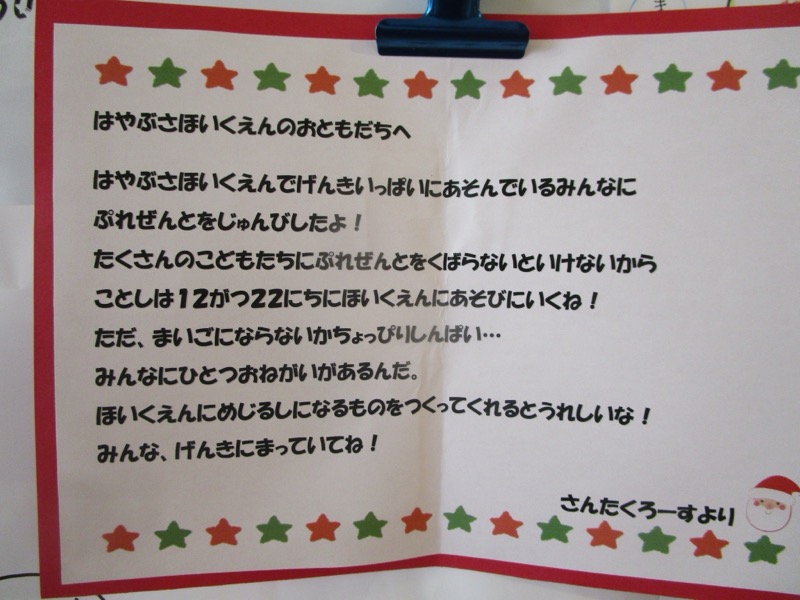 はやぶさほいくえんのおともだちへ
はやぶさほいくえんでげんきいっぱいにあそんでいるみんなに
ぷれぜんとをじゅんびしたよ！
たくさんのこどもたちにぷれぜんとをくばらないといけないから
ことしは12がつ22にちにほいくえんにあそびにいくね！
ただ、まいごにならないかちょっぴりしんぱい…
みんなにひとつおねがいがあるんだ。
ほいくえんにめじるしになるものをつくってくれるとうれしいな！
みんな、げんきにまっていてね！
さんたくろーすより